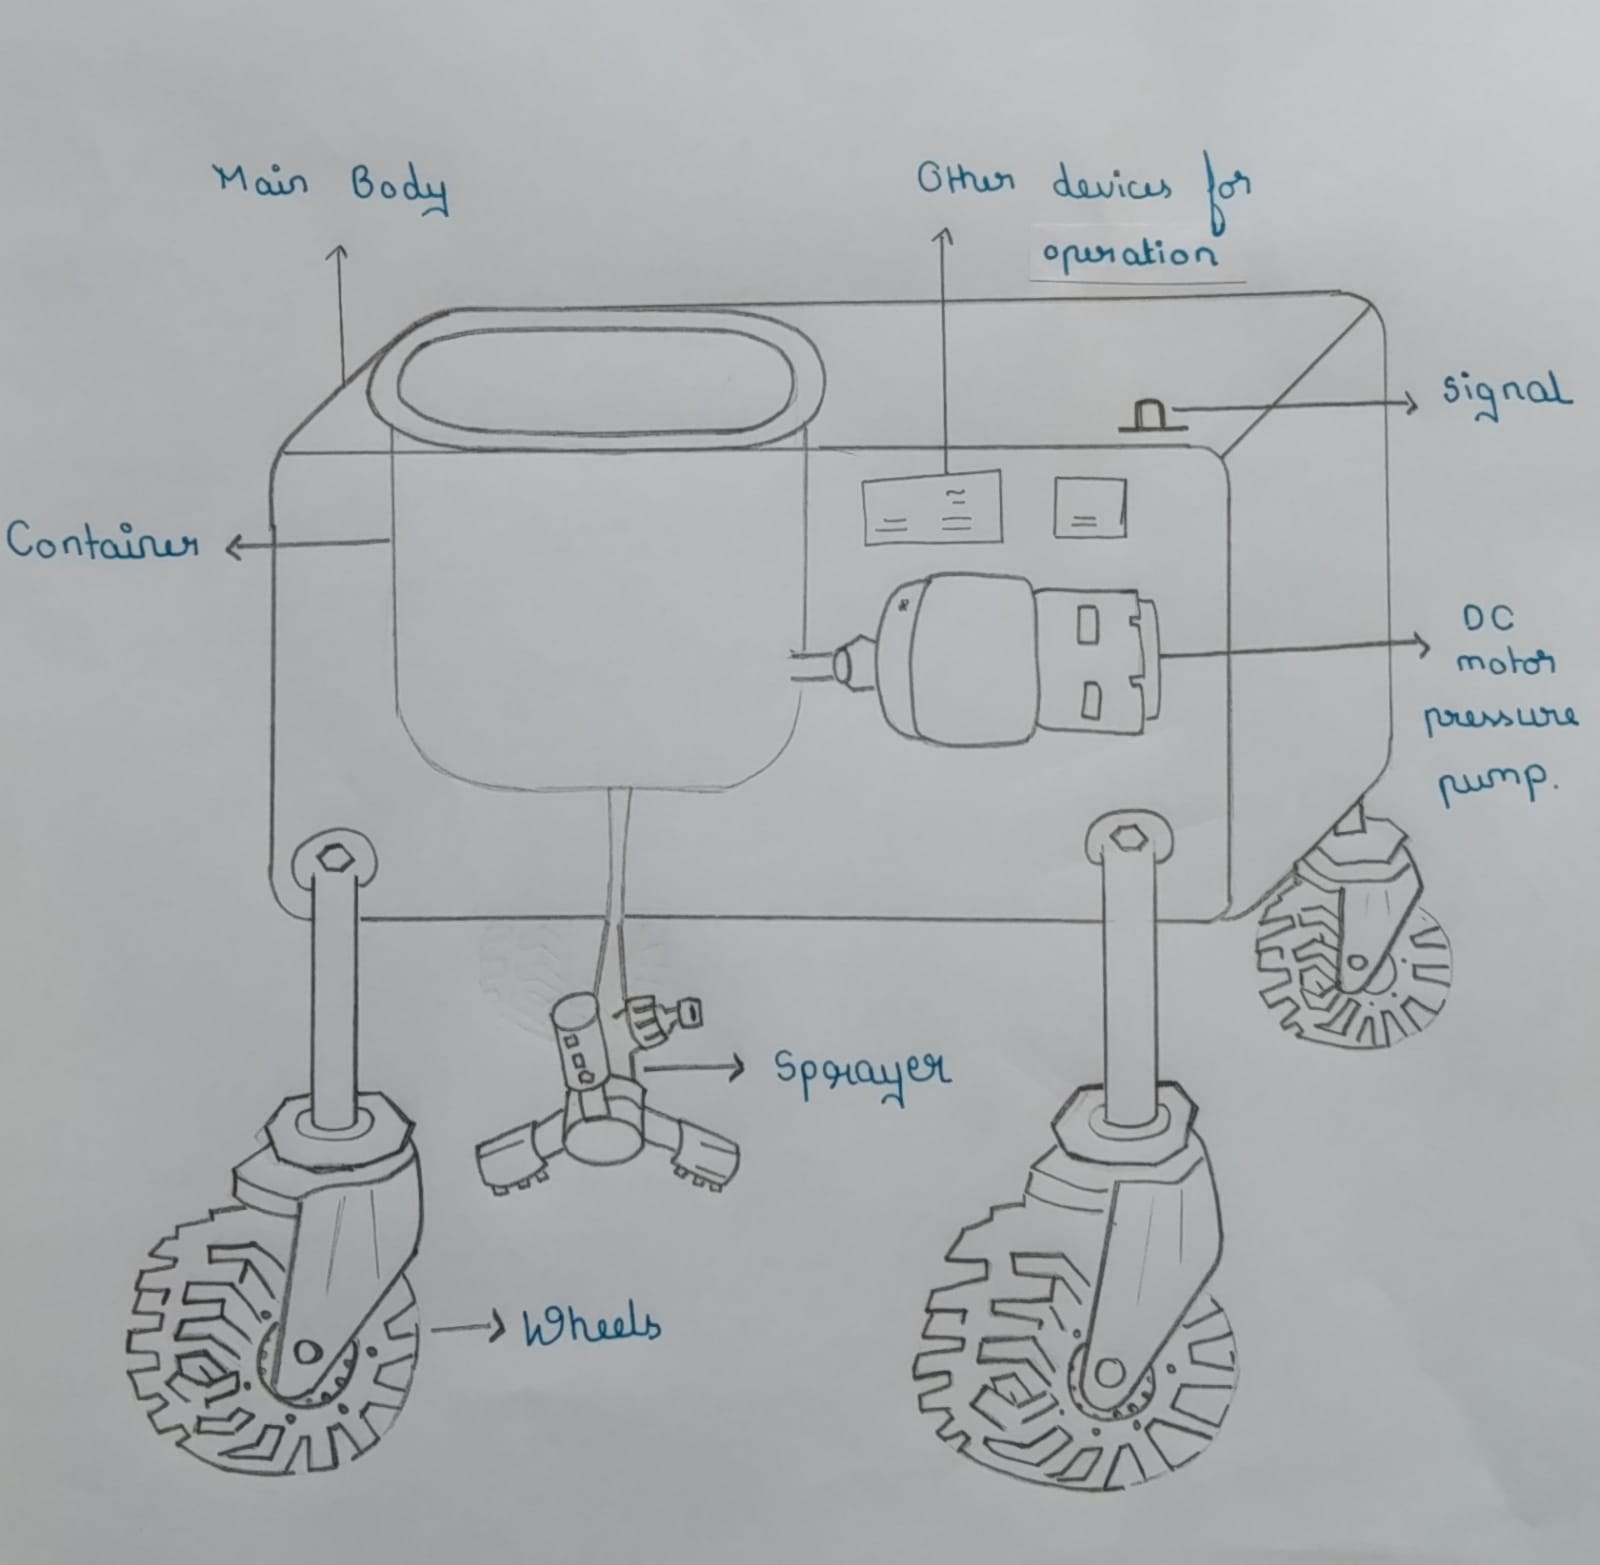 Main Body
Other devices for
operation
Signal
Container
DC
motor
pressure
pump.
Sprayer
Wheels